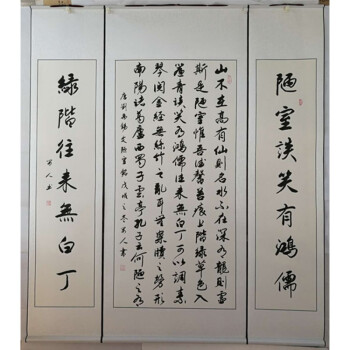 陋室談笑有鴻儒
山不在高有仙則名水不在深有龍則靈
斯是陋室惟吾德馨苔痕上階緑草色入
簾青談笑有鴻儒往来無白丁可以調素
琴閱金經無絲竹之亂耳無案牘之勞形
南陽諸葛廬西蜀子雲亭孔子云何陋之有
唐劉禹錫文陋室銘戊戌之冬人書
緑階往来無白丁
人書